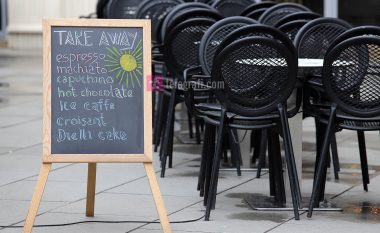 TAKE AWAY
espresso
machiato
capuchino
hot chocolate
Ice caffe
Croisant
Dielli cake
telegrafi.com